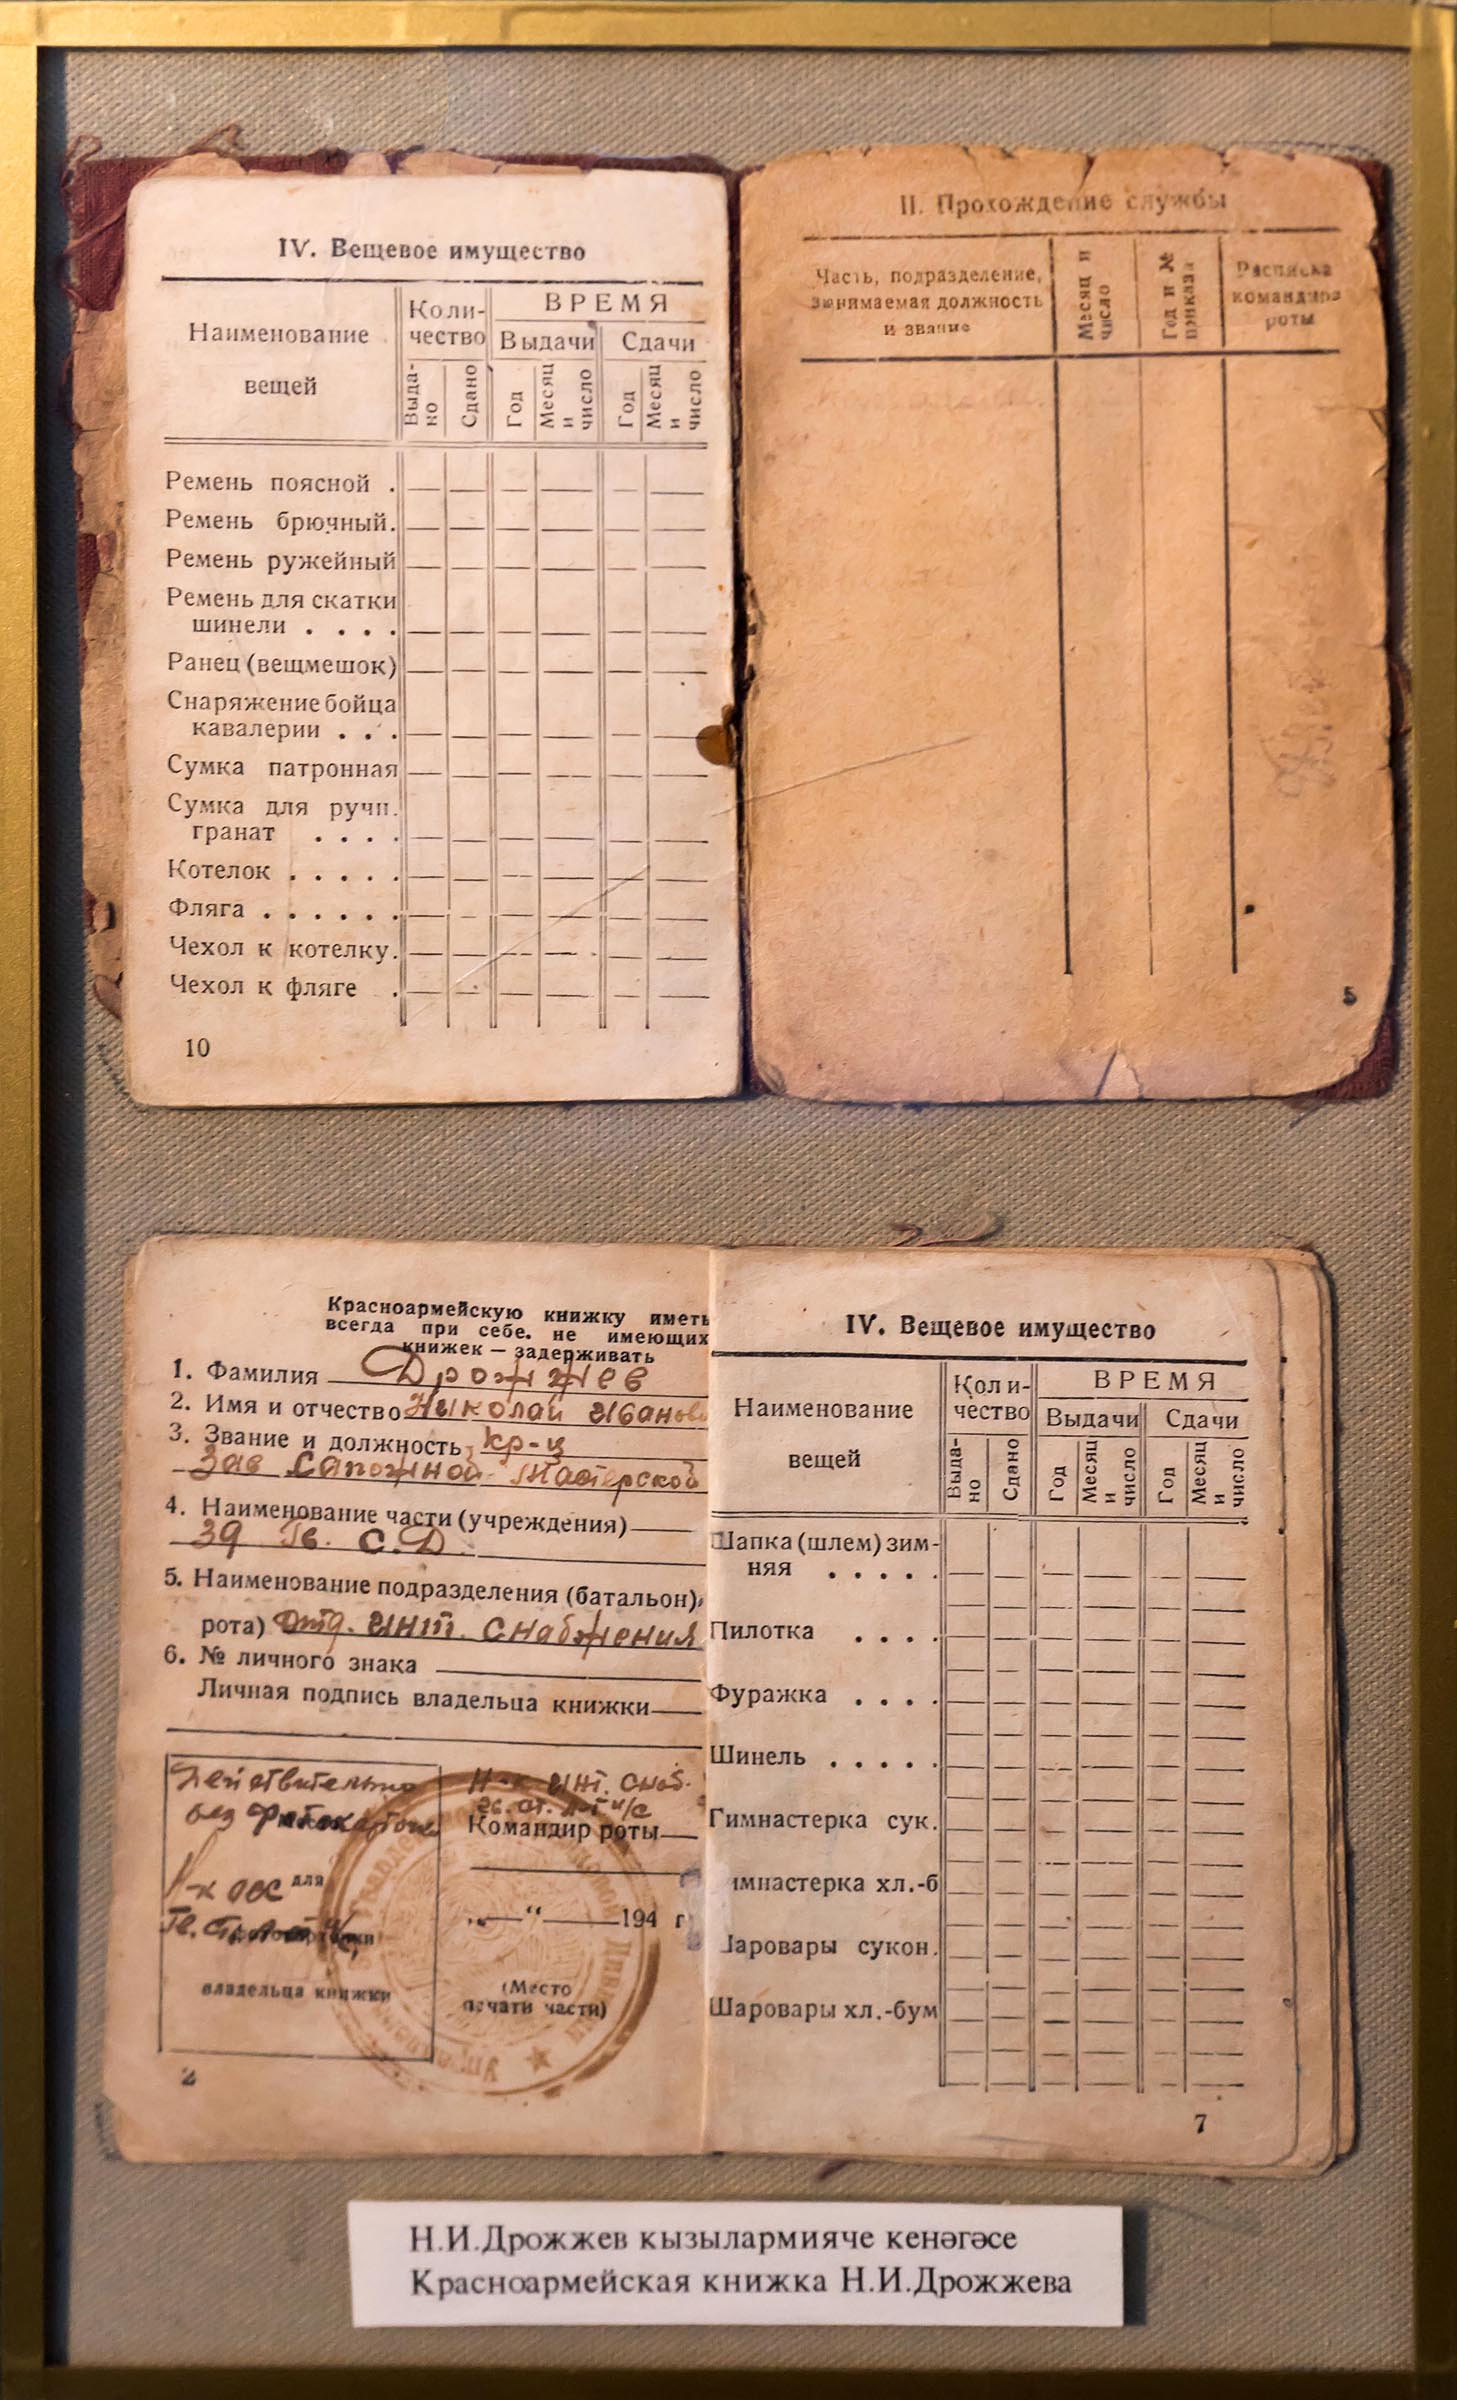 IV. Вещевое имущество
Наименование вещей
Коли-
чество
ВРЕМЯ
Выдачи Сдачи
Выда-
но
Сдано
Год
Месяц
и
число
Год
Месяц
и
число
Ремень поясной .
Ремень брючный.
Ремень ружейный
Ремень для скатки
шинели . . . .
Ранец (вещмешок)
Снаряжение бойца
кавалерии . . .
Сумка патронная
Сумка для ручн.
гранат . . . .
Котелок . . . . .
Фляга . . . . . .
Чехол к котелку.
Чехол к фляге .
10
II. Прохождение службы
Часть, подразделение,
занимаемая должность
и звание
Месяц и
число
Год и №
приказа
Расписка
командира
роты
5
Красноармейскую книжку иметь
всегда при себе. не имеющих
книжек — задерживать
1. Фамилия Дрожжев
2. Имя и отчество Николай Иванови
3. Звание и должность кр-ц
Зав сапожной мастерской
4. Наименование части (учреждения)
39 Гв. С.Д.
5. Наименование подразделения (батальон),
рота) Отд. инт. снабжения
6. № личного знака
Личная подпись владельца книжки
Действительно
без фотокарточ
Н-к инт. снаб.
Командир роты
для
„ “ 194 г
владельца книжки
(Место
печати части)
2
IV. Вещевое имущество
Наименование
вещей
Коли-
чество
ВРЕМЯ
Выдачи Сдачи
Выда-
но
Сдано
Год
Месяц
и
число
Год
Месяц
и
число
Шапка (шлем) зим-
няя . . . . .
Пилотка . . . .
Фуражка . . . .
Шинель . . . . .
Гимнастерка сук.
имнастерка хл.-б
Шаровары сукон.
Шаровары хл.-бум
7
Н.И.Дрожжев кызылармияче кенәгәсе
Красноармейская книжка Н.И.Дрожжева